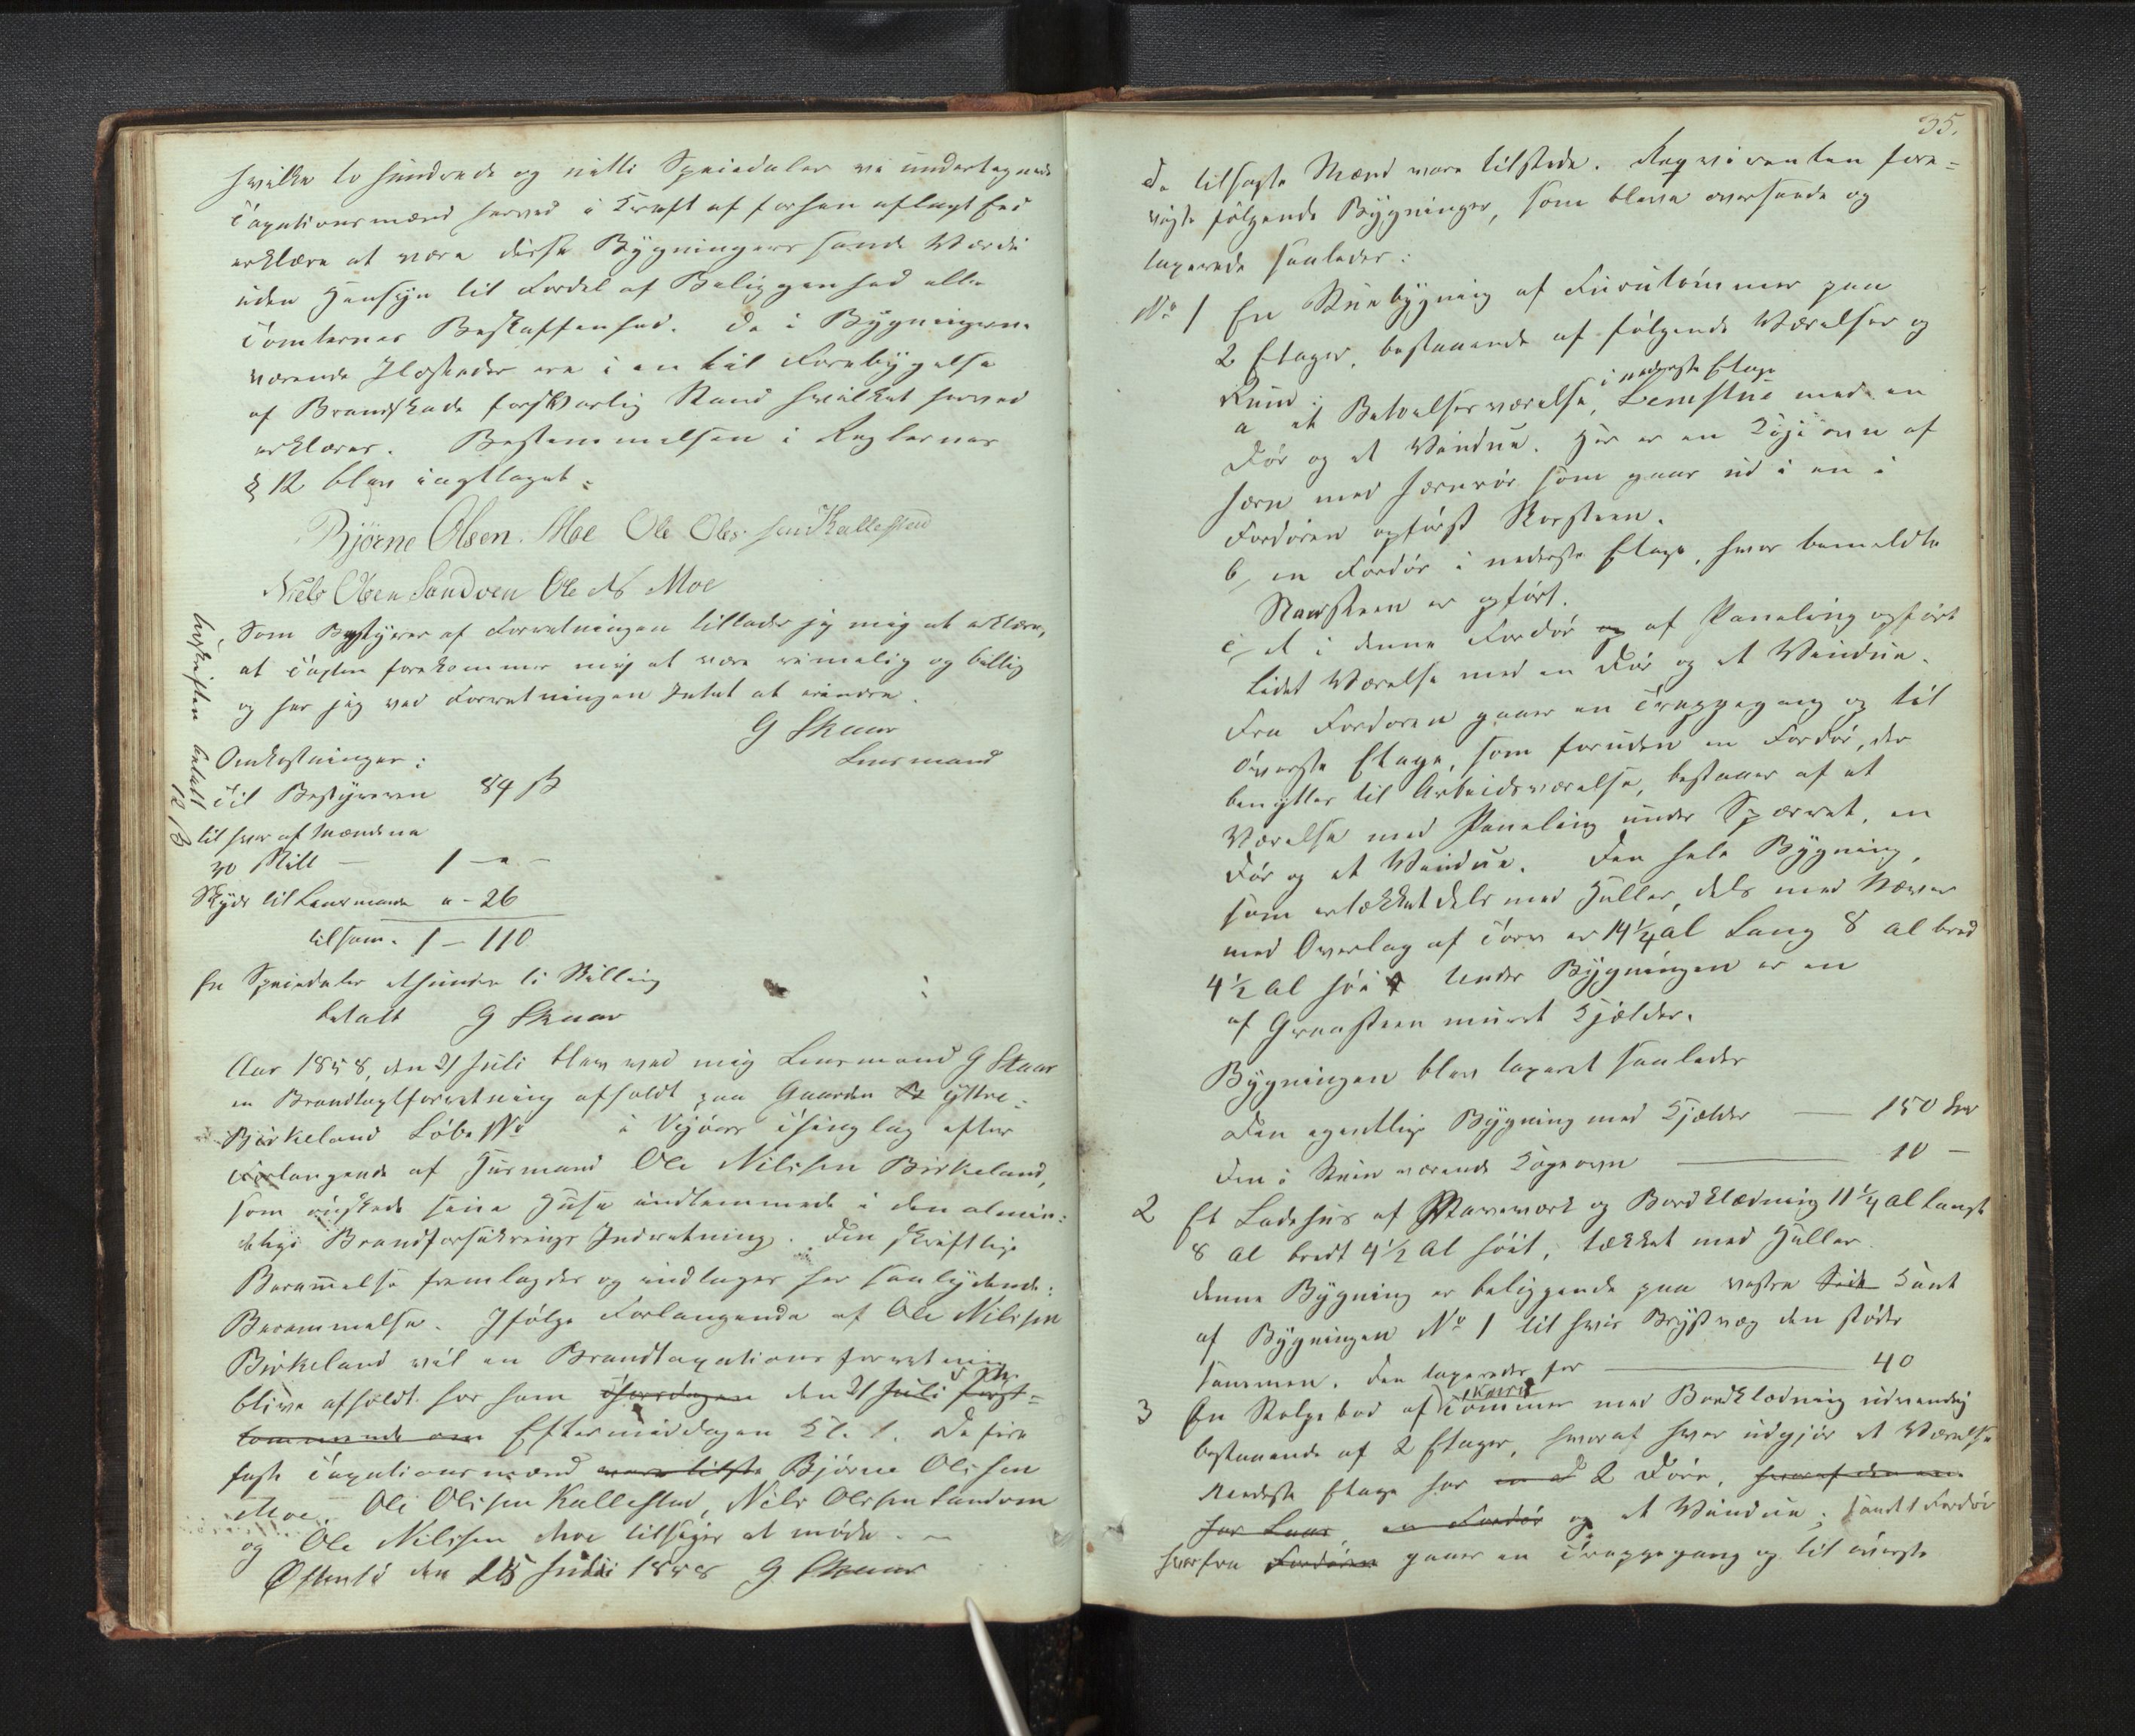 hvilke to hundrede og nitti Speciedaler vi undertegnede
Taxationsmænd herved i Kraft af forhen aflagt Eed
erklære at være disse Bygningers sande Værdi
uden Hensyn til Fordel af Beliggenhed eller
Tomternes Beskaffenhed. De i Bygningerne
værende Ildsteder ere i en til Forebyggelse
af Brandskade forsvarlig Stand hvilket herved
erklæres. Bestemmelsen i Reglernes
§ 12 blev iagttaget.
Bjørne Olsen Moe Ole Olessen Kallestad
Niels Olsen Sandven Ole Ns Moe
Som Bestyrer af Forretningen tillader jeg mig at erklære,
at Taxten forekommer mig at være rimelig og billig
og har jeg ved Forretningen Intet at erindre.
G Skaar
Lensmand
Omkostninger:
Til Bestyreren 84 ß
til hver af Mændene
30 Skill — 1 — " —
Skyds til Lensmand " - 26
tilsam. 1 — 110
En Speciedaler et hundre ti Skilling
betalt G Skaar
beskriften betalt
12 ß
Aar 1858, den 21 Juli blev ved mig Lensmand G Skaar
en Brandtaxtforretning afholdt paa Gaarden Yttre-
Birkeland Løbe No i Vigøers Thinglag efter
Forlangende af Husmand Ole Nilssen Birkeland,
som ønskede sine Huse indlemmede i den almin-
delige Brandforsikrings Indretning. Den skriftlige
Berammelse fremlagdes og indtages her saalydende:
Berammelse. Ifølge Forlangende af Ole Nilssen
Birkeland vil en Brandtaxations forretning
blive afholdt hos ham den 21 Juli først-
kommende om Eftermiddagen Kl. 1. De fire
faste Taxationsmænd vare tilste Bjørne Olssen
Moe, Ole Olssen Kallestad, Nils Olssen Sandven
og Ole Nilssen Moe tilsiges at møde.
Østensø den 15 Juli 1858 G Skaar
35.
De tilsagte Mænd vare tilstede. Reqvirenten fore-
viiste følgende Bygninger, som bleve overseede og
taxerede saaledes:
No 1 En Stuebygning af Furutømmer paa
2 Etager, bestaaende af følgende Værelser og
Rum:
i nederste Etage
a et Beboelsesværelse, Lemstue med en
Dør og et Vindue. Her er en Kogeovn af
Jern med Jernrør som gaar ud i en i
Fordøren opført Skorsteen.
b, en Fordør i nederste Etage, hvor bemeldte
Skorsteen er opført.
c, et i denne Fordør og af Paneling opført
lidet Værelse med en Dør og et Vindue.
Fra Fordøren gaaer en Trappegang op til
øverste Etage, som foruden en Fordør, der
benyttes til Arbeidsværelse, bestaaer af et
Værelse med Paneling under Sperret, en
Dør og et Vindue. Den hele Bygning,
som er tækket dels med Heller, dels med Næver
med Overlag af Torv er 14 1/4 al Lang 8 al bred
4 1/2 Al høi Under Bygningen er en
af Graasteen muret Kjælder.
Bygningen blev taxeret saaledes
Den egentlige Bygning med Kjælder — 150 Spd
Den i Stuen værende Kogeovn — 10 —
2 Et Ladehus af Stavværk og Bordklædning 11 1/4 Al langt
8 Al bredt 4 1/2 Al høit, tækket med Heller.
denne Bygning er beliggende paa vestre Side Kant
af Bygningen No 1 til hvis Brystvæg den støder
sammen. Den taxeredes for — 40
3 En Stolpebod af Tømmer med Bordklædning udvendig
bestaaende af 2 Etager, hvoraf hver udgjør et Værelse
Nederste Etage har 2 Døre, hvoraf den ene
har Laas en Fordør og et Vindue; samt 1 Fordør
hvorfra Fordøren gaaer en Trappegang op til øverste